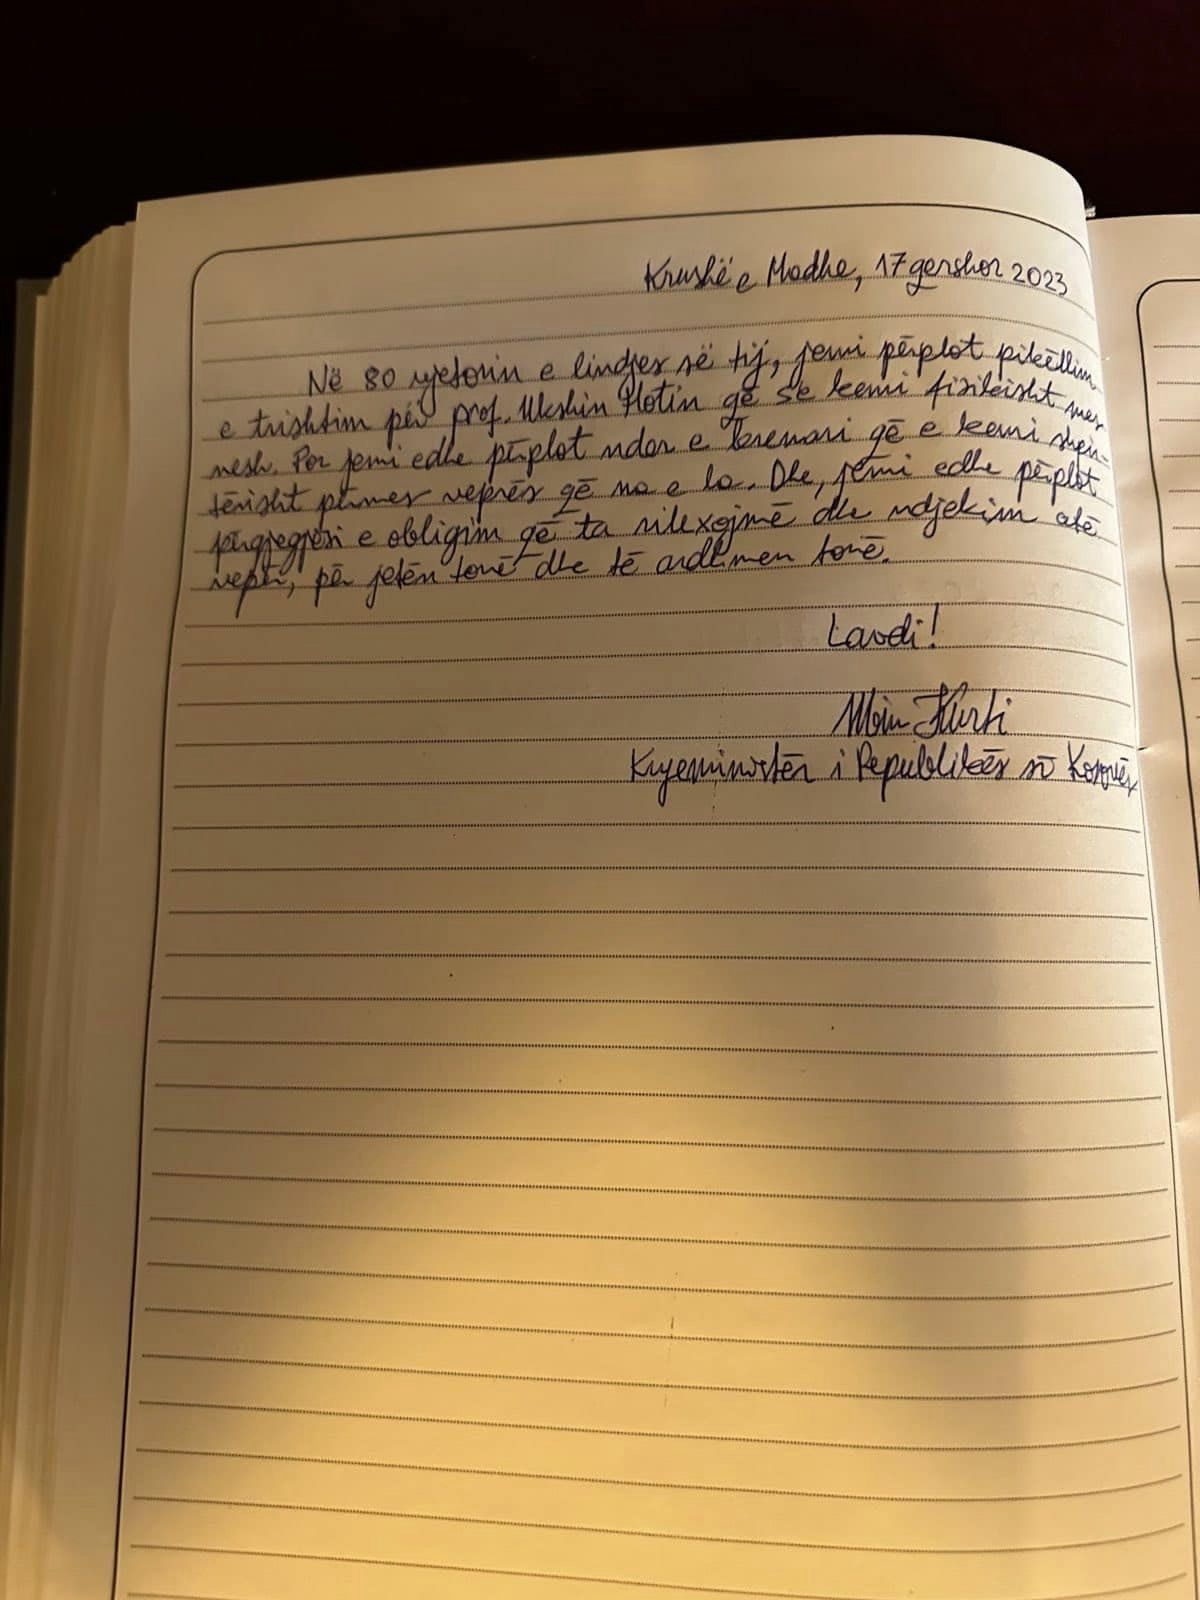 Krushë e Madhe, 17 qershor 2023
Në 80 vjetorin e lindjes së tij, jemi përplot pikëllim
e trishtim për prof. Ukshin Hotin që s'e kemi fizikisht mes
nesh. Por jemi edhe përplot nder e krenari që e kemi shpir-
tërisht përmes veprës që na e la. Dhe, jemi edhe përplot
përgjegjësi e obligim që ta rilexojmë dhe ndjekim atë
vepër, për jetën tonë dhe të ardhmen tonë.
Lavdi!
Albin Kurti
Kryeministër i Republikës së Kosovës